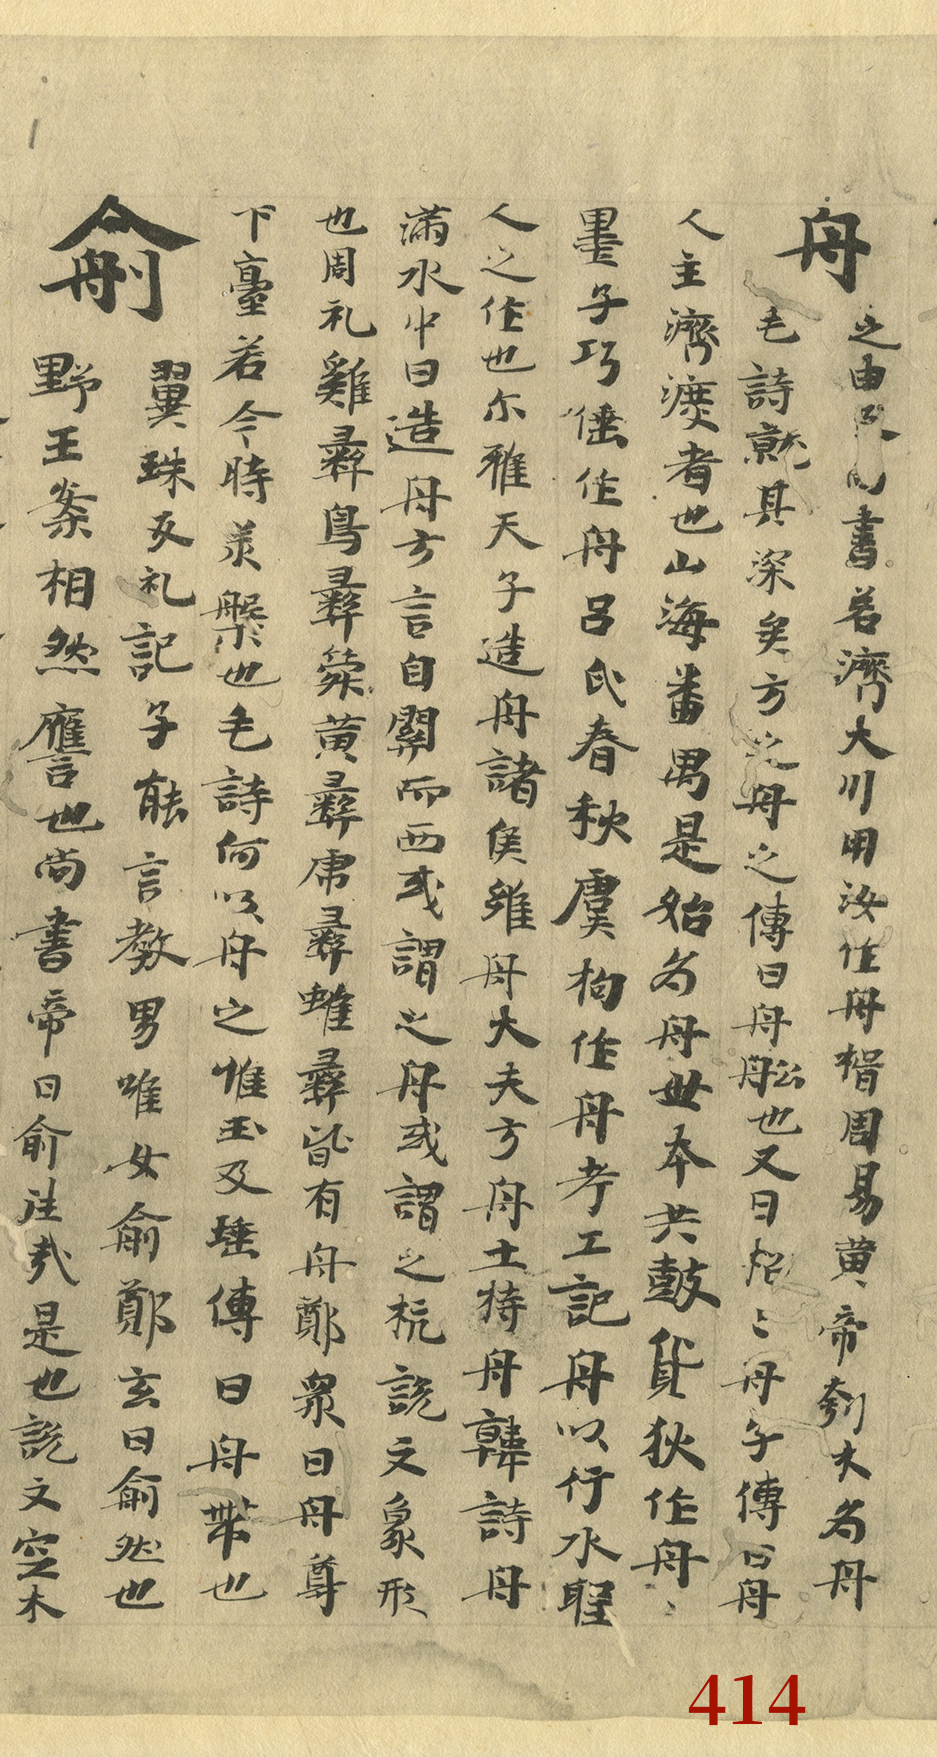 舟
之由反尚書若濟大川用汝作舟楫周易黄帝刳木為舟
毛詩就其深矣方之舟之傳曰舟舩也又曰招〻舟子傳曰舟
人主濟渡者也山海番禺是始為舟世本共鼓貨狄作舟〻
墨子巧倕作舟吕氏春秋虞姁作舟考工記舟以行水聖
人之作也尓雅天子造舟諸侯維舟大夫方舟士特舟韓詩舟
滿水中曰造舟方言自關而西或謂之舟或謂之杭説文象形
也周礼雞彝鳥彝斝黄彝虎彝蜼彝皆有舟鄭衆曰舟尊
下臺若今時羕槃也毛詩何以舟之惟玉及瑶傳曰舟帶也
俞
翼珠反礼記子能言教男唯女俞鄭玄曰俞然也
野王案相然譍也尚書帝曰俞往哉是也説文空木
414